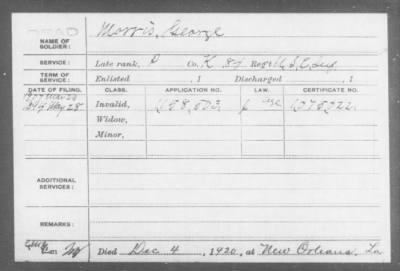 DEAD
NAME OF SOLDIER: Morris, George
SERVICE: Late rank, P Co. K 84 Reg't U.S.C. Inf
TERM OF SERVICE: Enlisted , 1 Discharged , 1
DATE OF FILING. CLASS. APPLICATION NO. LAW. CERTIFICATE NO.
Invalid, age
May 28
Widow,
Minor,
ADDITIONAL SERVICES:
REMARKS:
Died Dec 4, 1920, at New Orleans, La